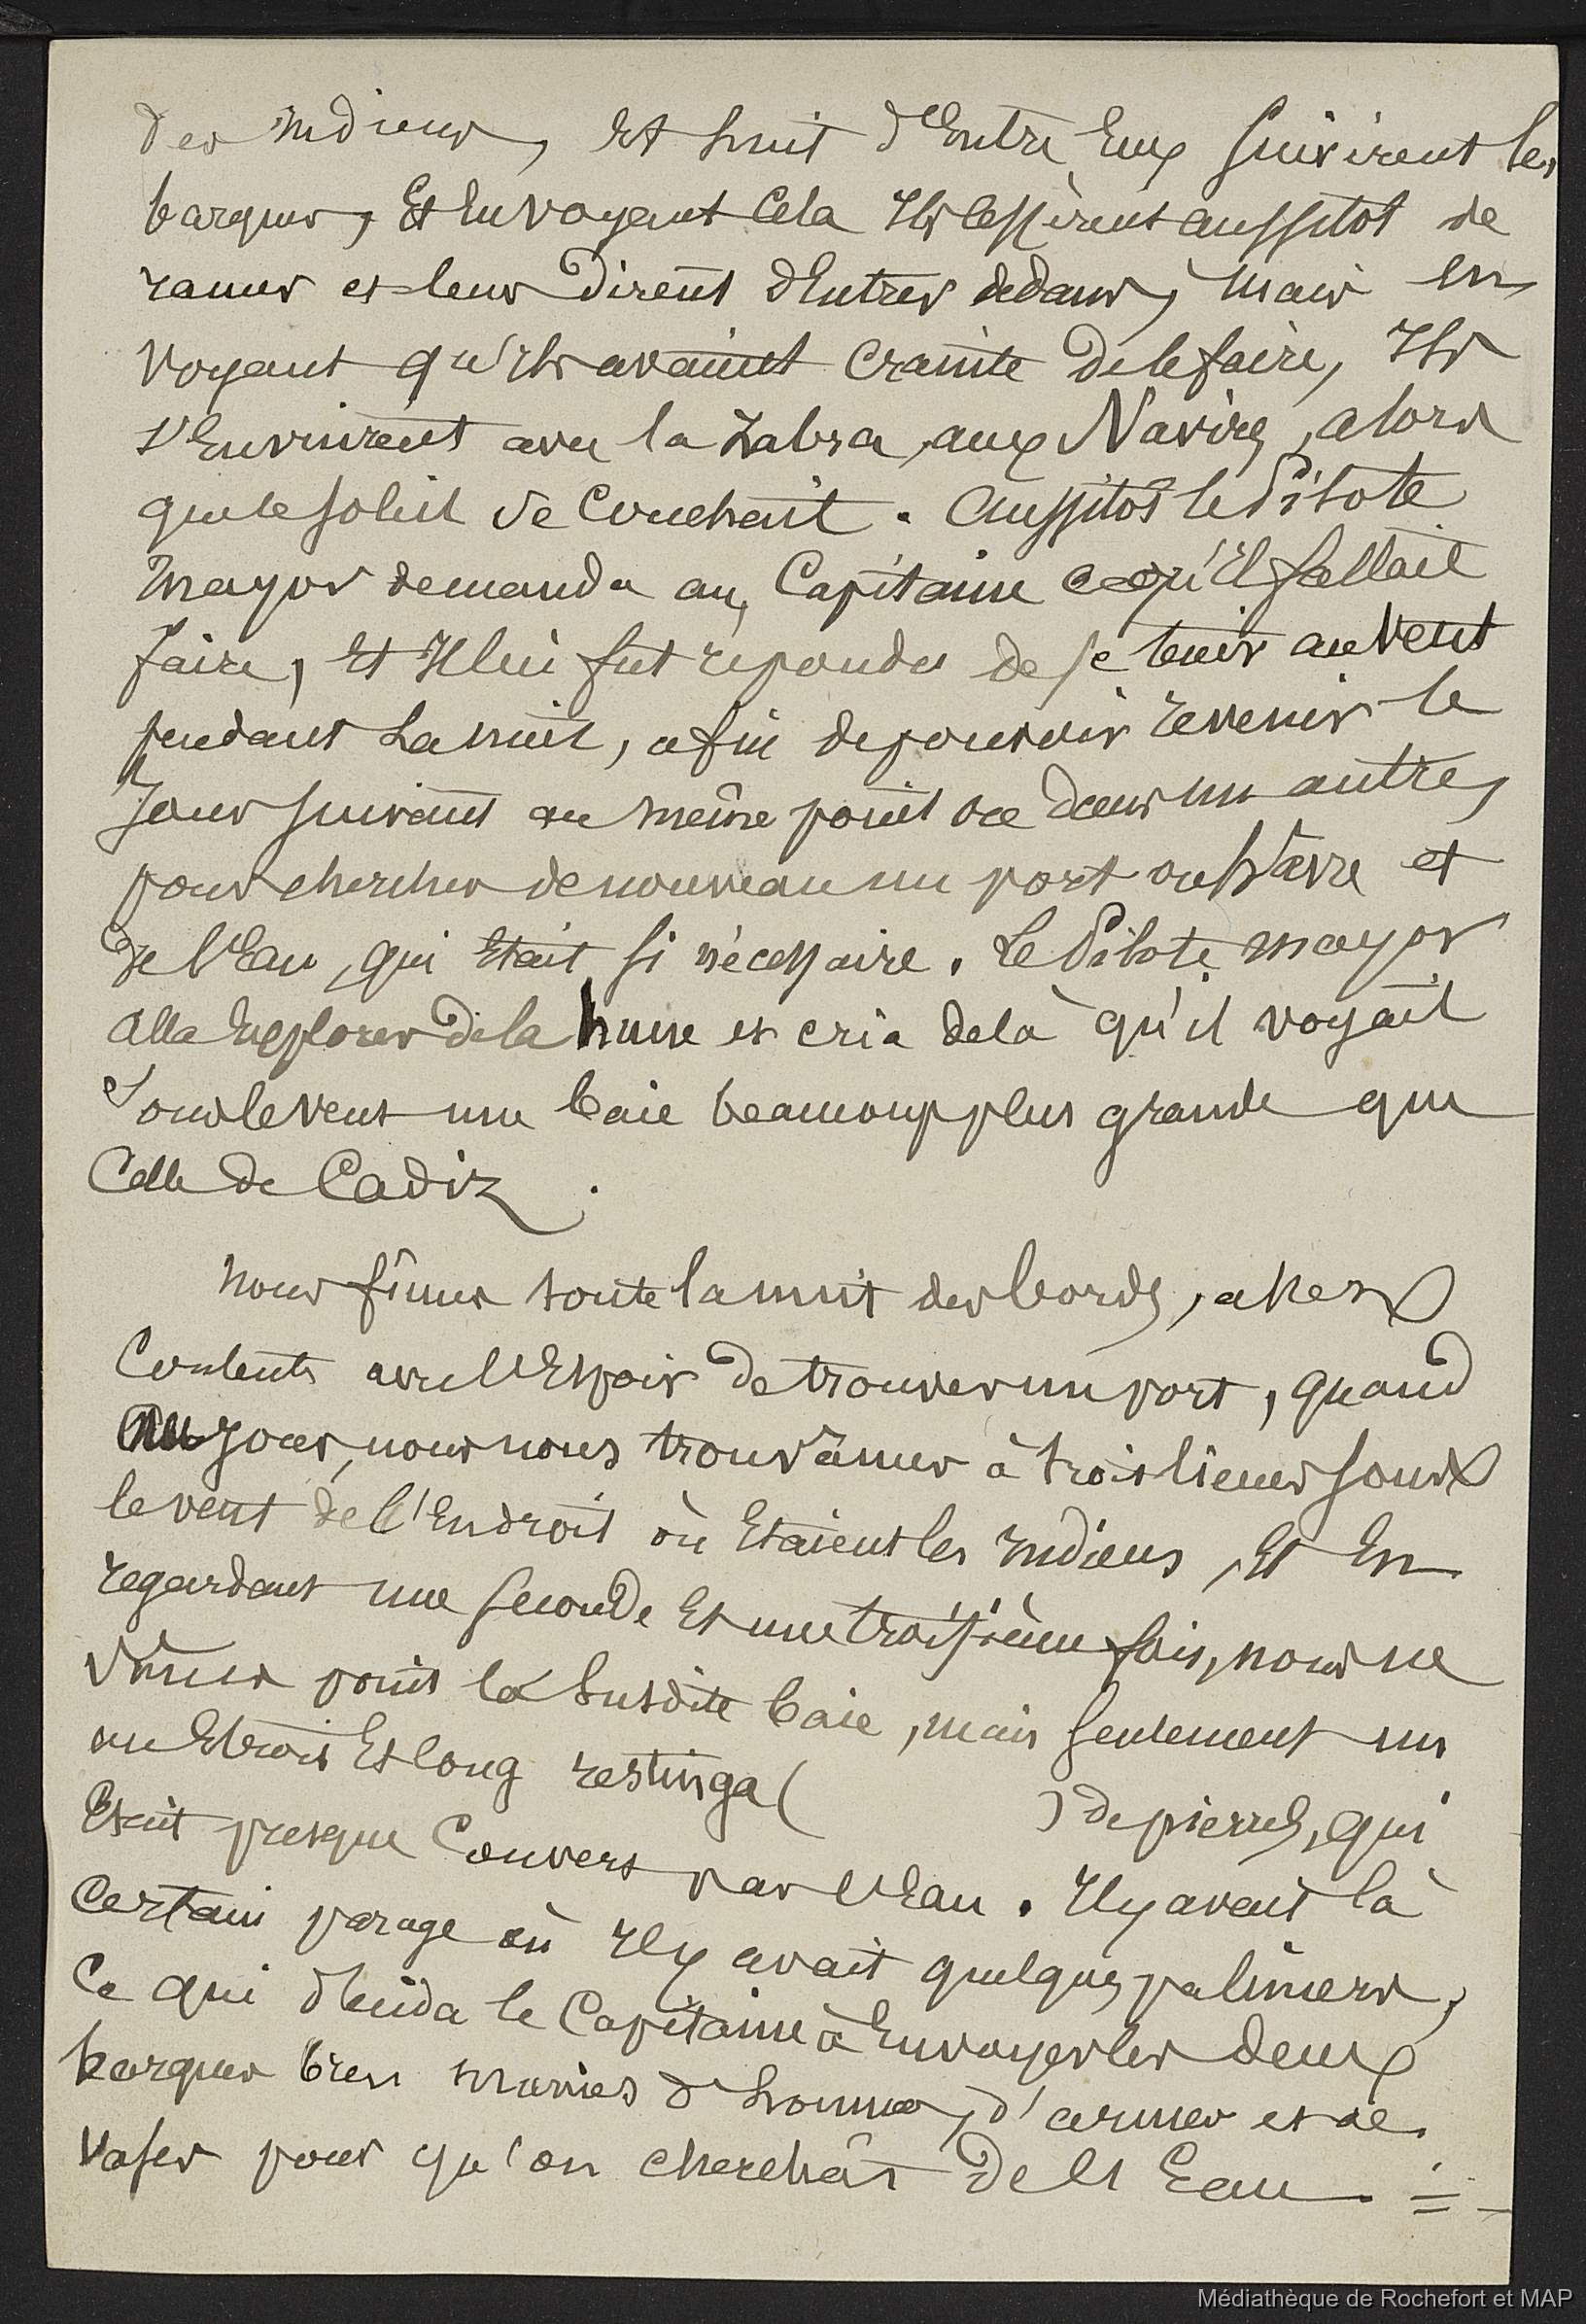 des Indiens, Et huit d'Entre Eux suivirent les
barques, Et En voyant Cela Ils cessèrent aussitot de
ramer et leur Dirent d'Entrer dedans, mais en
voyant qu'Ils avaient crainte De le faire, Ils
s'Envinrent avec la Zabra aux Navires, alors
que le soleil se Couchait. Aussitot le Pilote
mayor demanda au Capitaine ce qu'Il fallait
faire, Et Il lui fut repondu de se tenir au vent
pendant La nuit, afin de pouvoir revenir le
Jour suivant au même point ou dans un autre,
pour chercher de nouveau un port ou hâvre et
de l'Eau, qui Etait si nécessaire. Le Pilote mayor
alla Explorer De la hune et cria de là qu'il voyait
sous le vent une baie beaucoup plus grande que
Celle de Cadiz.
Nous fîmes toute la nuit des bords, assez
Contents avec l'Espoir De trouver un port, quand
au jour, nous nous trouvâmes à trois lieues sous
le vent de l'Endroit où Etaient les Indiens, Et En
regardant une seconde Et une troisième fois, nous ne
vîmes point la susdite baie, mais seulement un
un Etroit Et long restinga ( ) de pierres, qui
Etait presque Couvert par l'Eau. Il y avait là
Certain parage où Il y avait quelques palmiers,
Ce qui décida le Capitaine à Envoyer les deux
barques bien munies d'hommes, d'armes et de
vases pour qu'on cherchât De l'Eau. =
Médiathèque de Rochefort et MAP